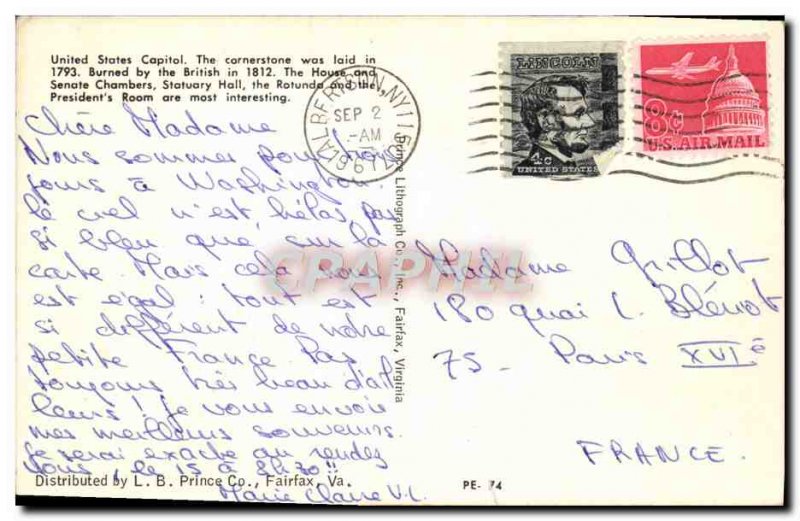 United States Capitol. The cornerstone was laid in
1793. Burned by the British in 1812. The House and
Senate Chambers, Statuary Hall, the Rotunda and the
President's Room are most interesting.
Chère Madame
Nous sommes pour trois
jours à Washington.
Le ciel n'est, hélas, pas
si bleu que sur la
carte. Mais cela nous
est égal: tout est
si différent de notre
petite France. Pas
toujours très beau d'ail
leurs! Je vous envoie
mes meilleurs souvenirs.
Je serai exacte au rendez
vous, le 15 à 8h30!!
Marie Claire V.C.
Distributed by L. B. Prince Co., Fairfax, Va.
PE- 74
Prince Lithograph Co., Inc., Fairfax, Virginia
ALBERTSON, NY 11507
SEP 2
-AM
1967
LINCOLN
4c
UNITED STATES
8c
U.S. AIR MAIL
Madame Grillot
180 quai L. Blériot
75 - Paris XVIè
FRANCE.
CPAPHIL